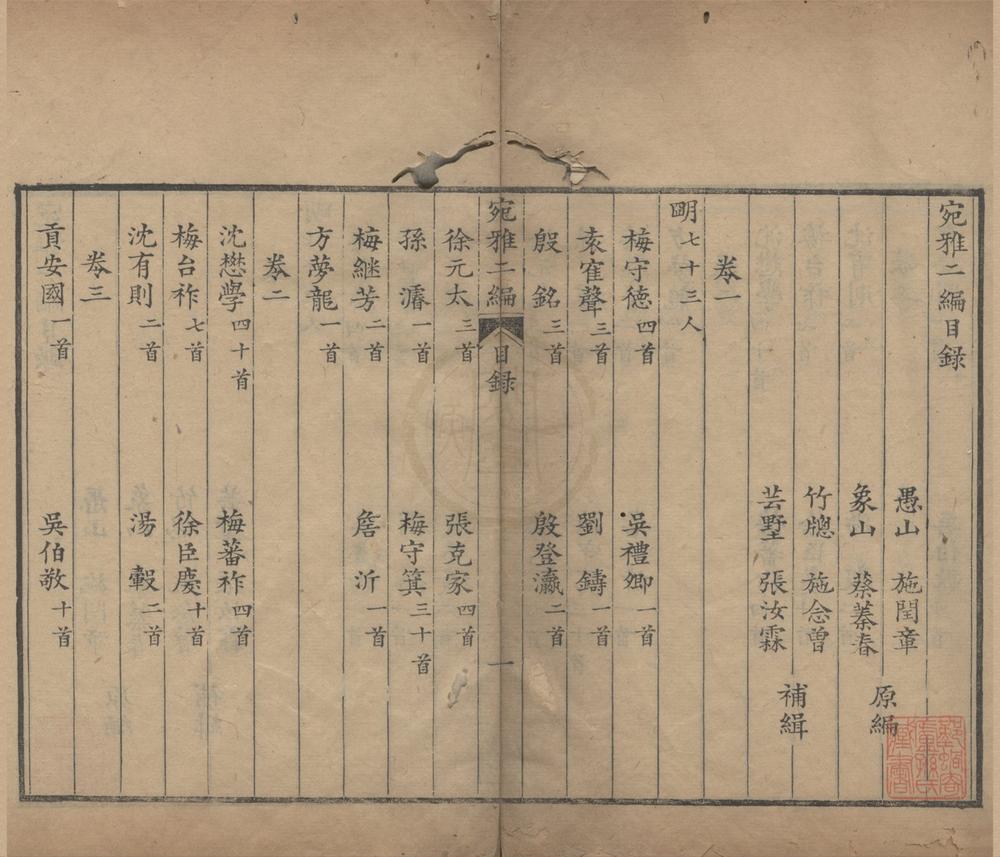 宛雅二編目録
愚山 施閏章
象山 蔡蓁春
原編
竹牕 施念曾
芸墅 張汝霖
補緝
卷一
明七十三人
梅守德四首 吳禮卿一首
袁寉聲三首 劉鑄一首
殷銘三首 殷登瀛二首
宛雅二編 目録 一
徐元太三首 張克家四首
孫濬一首 梅守箕三十首
梅繼芳二首 詹沂一首
方夢龍一首
卷二
沈懋學四十首 梅蕃祚四首
梅台祚七首 徐臣慶十首
沈有則二首 湯轂二首
卷三
貢安國一首 吳伯敬十首